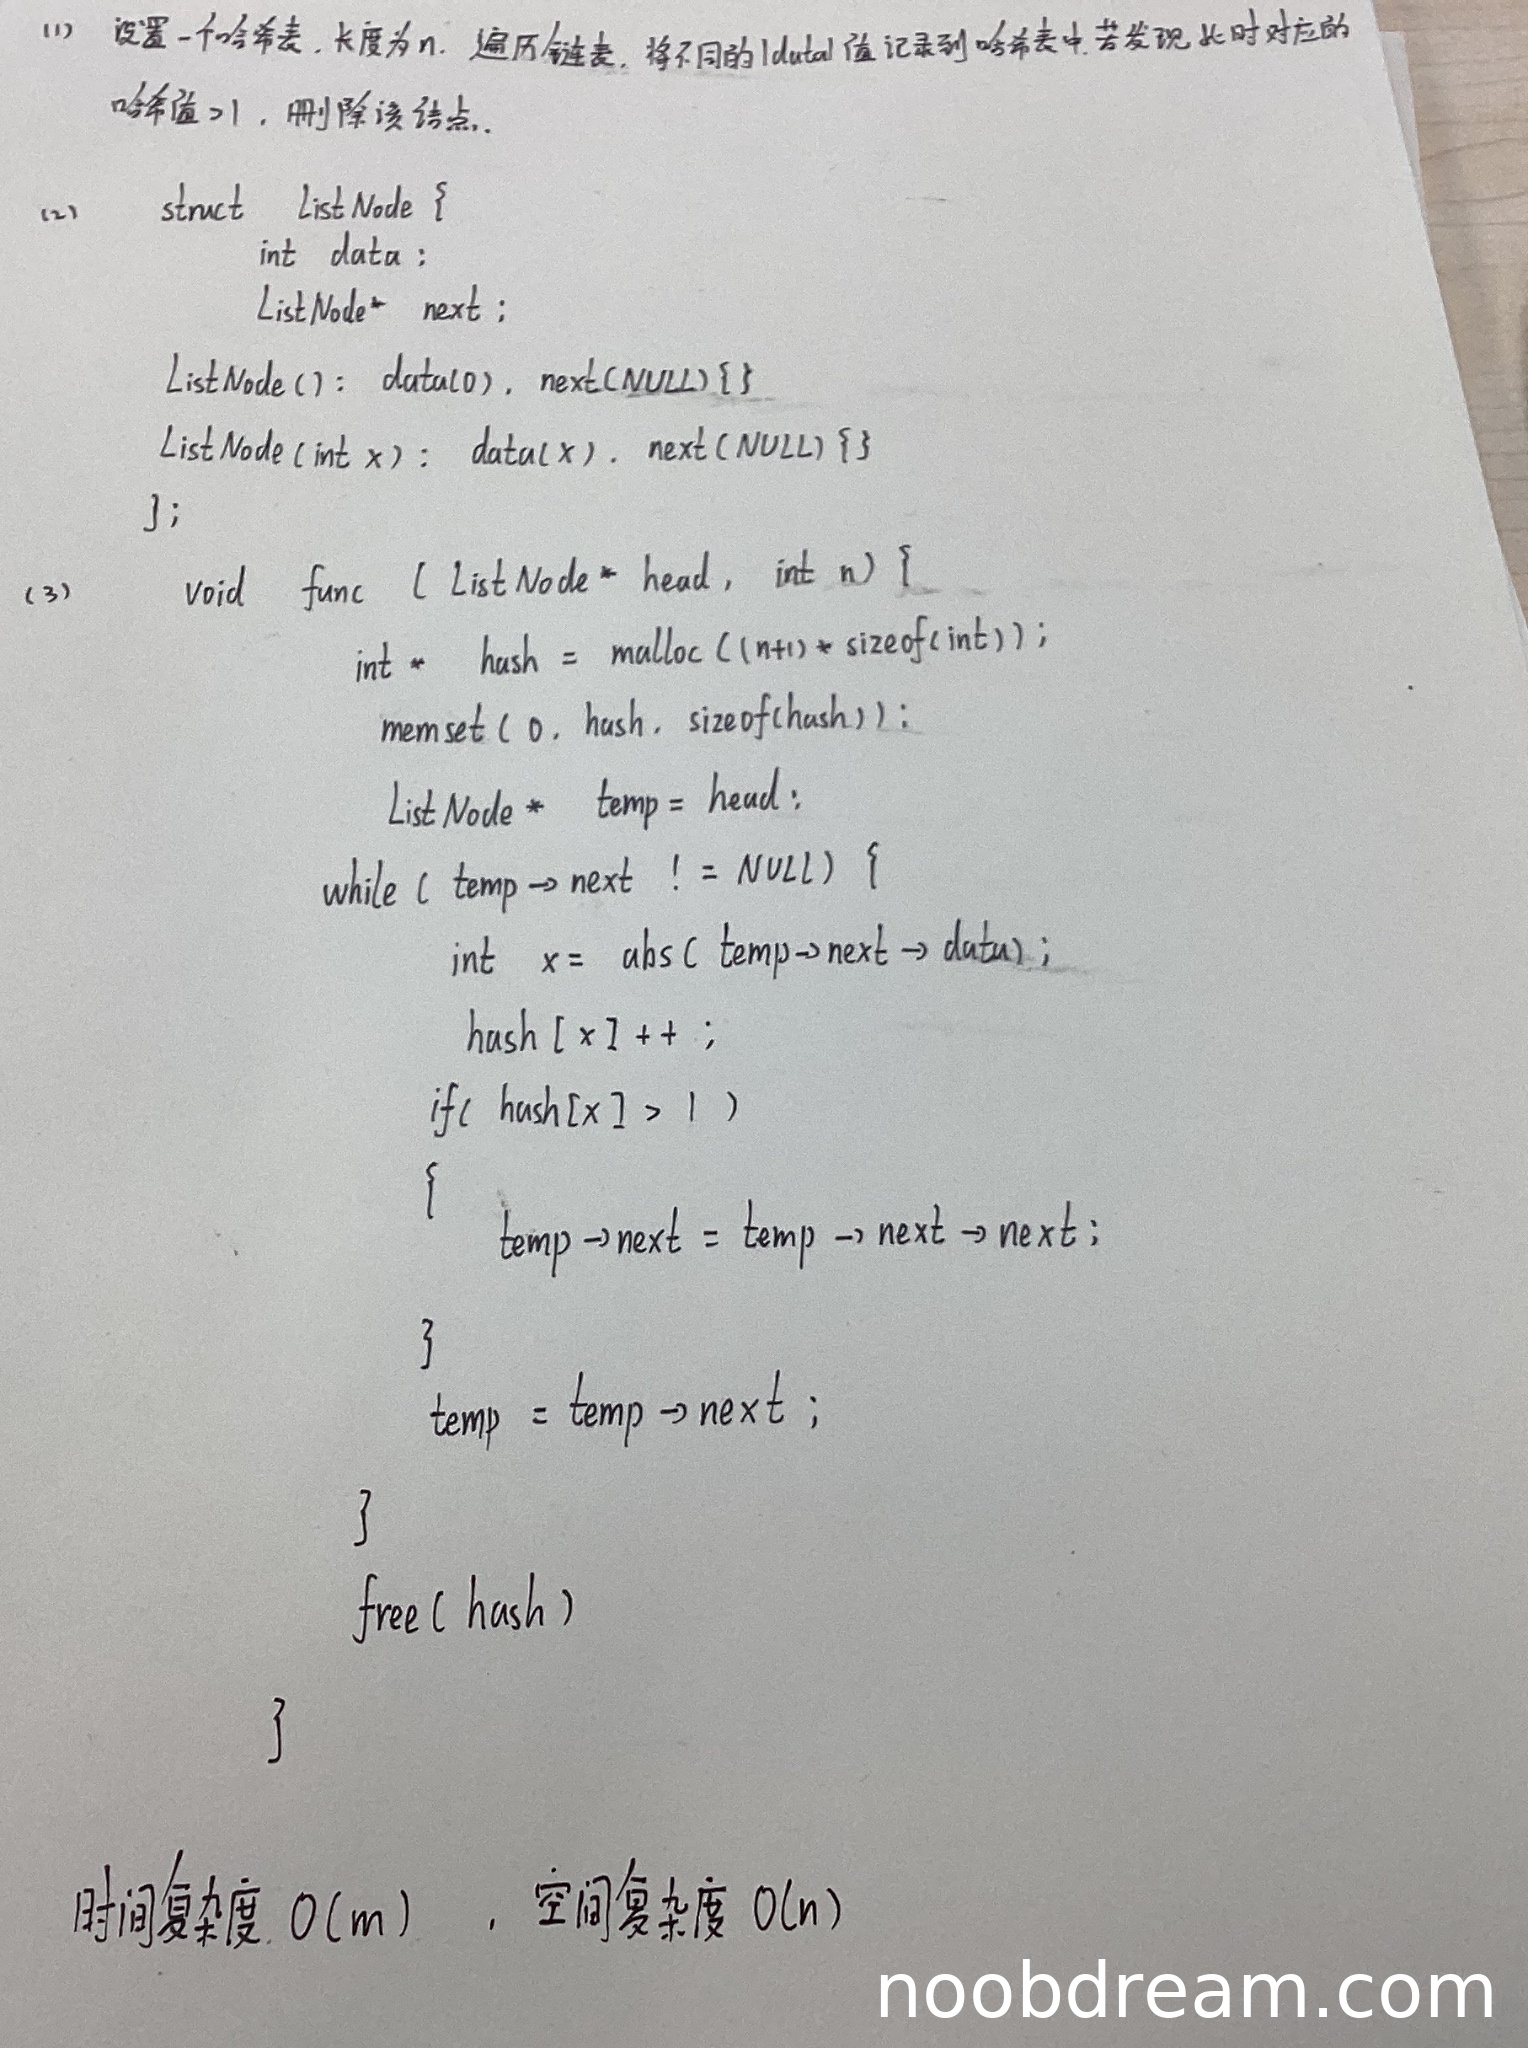 (1) 设置一个哈希表,长度为n. 遍历链表,将不同的|data|值记录到哈希表中.若发现此时对应的
哈希值>1,删除该结点.
(2) struct ListNode {
int data;
ListNode* next;
ListNode(): data(0), next(NULL){}
ListNode(int x): data(x), next(NULL){}
};
(3) void func (ListNode* head, int n) {
int* hash = malloc((n+1)*sizeof(int));
memset(0, hash, sizeof(hash));
ListNode* temp = head;
while(temp->next != NULL) {
int x = abs(temp->next->data);
hash[x]++;
if(hash[x]>1)
{
temp->next = temp->next->next;
}
temp = temp->next;
}
free(hash)
}
时间复杂度 O(m), 空间复杂度 O(n)
noobdream.com